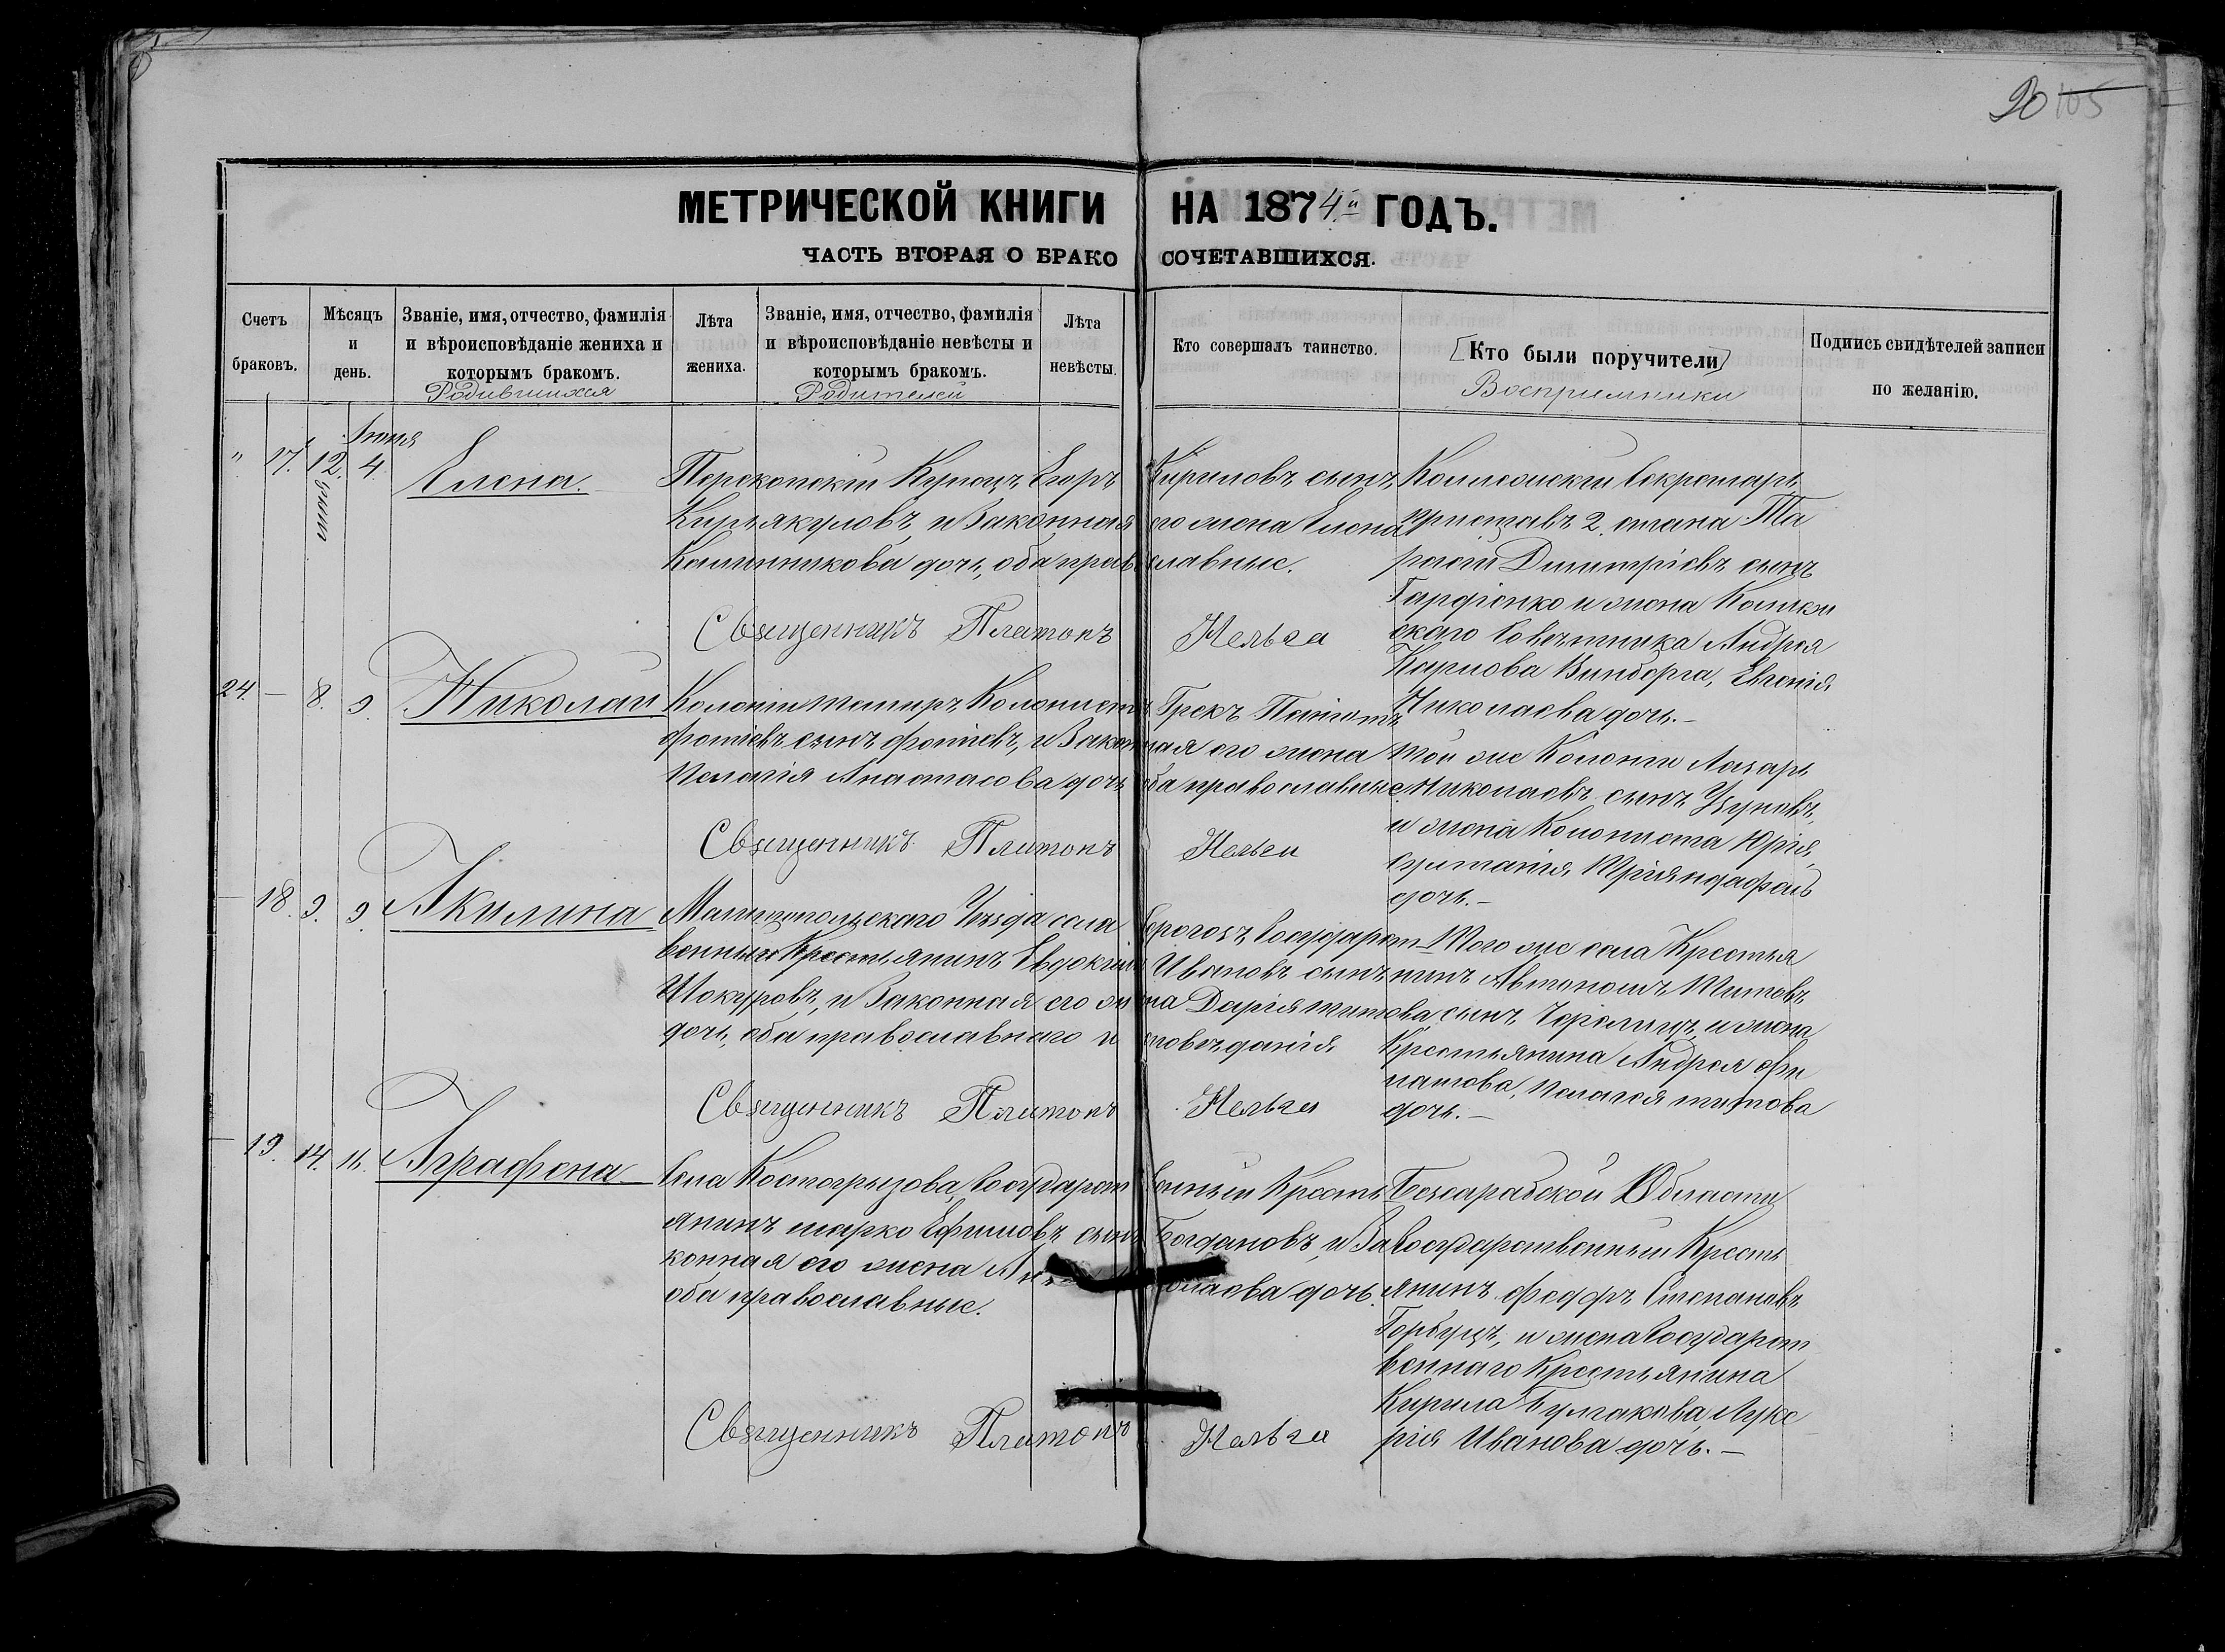 90 105
МЕТРИЧЕСКОЙ КНИГИ НА 1874й ГОДЪ.
ЧАСТЬ ВТОРАЯ О БРАКОСОЧЕТАВШИХСЯ.
Счетъ браковъ.
Мѣсяцъ и день.
Званіе, имя, отчество, фамилія и вѣроисповѣданіе жениха и которымъ бракомъ.
Родившихся
Лѣта жениха.
Званіе, имя, отчество, фамилія и вѣроисповѣданіе невѣсты и которымъ бракомъ.
Родителей
Лѣта невѣсты.
Кто совершалъ таинство.
[Кто были поручители]
Восприемники
Подпись свидѣтелей записи по желанію.
„ 17. 12. 4. Елена.
Перекопскій Купецъ Егоръ Кириловъ сынъ
и Законная его жена Елена
Калинникова дочь, оба православные.
Священникъ Платонъ
Коллежскій Секретарь
приставъ 2. стана
Димитріевъ сынъ
и жена
Совѣтника Андрея
Карлова Винберга, Евгенія
Николаева дочь.-
24. — 8. 9. Николай
Колоніи Колонистъ Грекъ
Фотіевъ сынъ Фотіевъ, и Законная его жена
Пелагія Анастасова дочь оба православные
Священникъ Платонъ
той же Колоніи Лазарь
Николаевъ сынъ
и жена Колониста Юрія
дочь.-
— 18. 9. 9. Акилина
Мелитопольскаго Уѣзда села Государст
венный Крестьянинъ Евдокимъ Ивановъ сынъ
и Законная его жена Дарія Титова
дочь, оба православнаго исповѣданія
Священникъ Платонъ
Того же села Крестья
нинъ Автономъ Титовъ
сынъ и жена
Крестьянина Андрея
Пелагея Титова
дочь.-
— 19. 14. 16. Аграфена
Села Костогрызова, Государственный Кресть
янинъ Марко Ефимовъ сынъ Богдановъ, и За
конная его жена дочь.
оба православные.
Священникъ Платонъ
Бессарабской Области
Государственный Кресть
янинъ Федоръ Степановъ
Горбуцъ, и жена Государст
веннаго Крестьянина
Кирила Булгакова, Луке
рія Иванова дочь.-